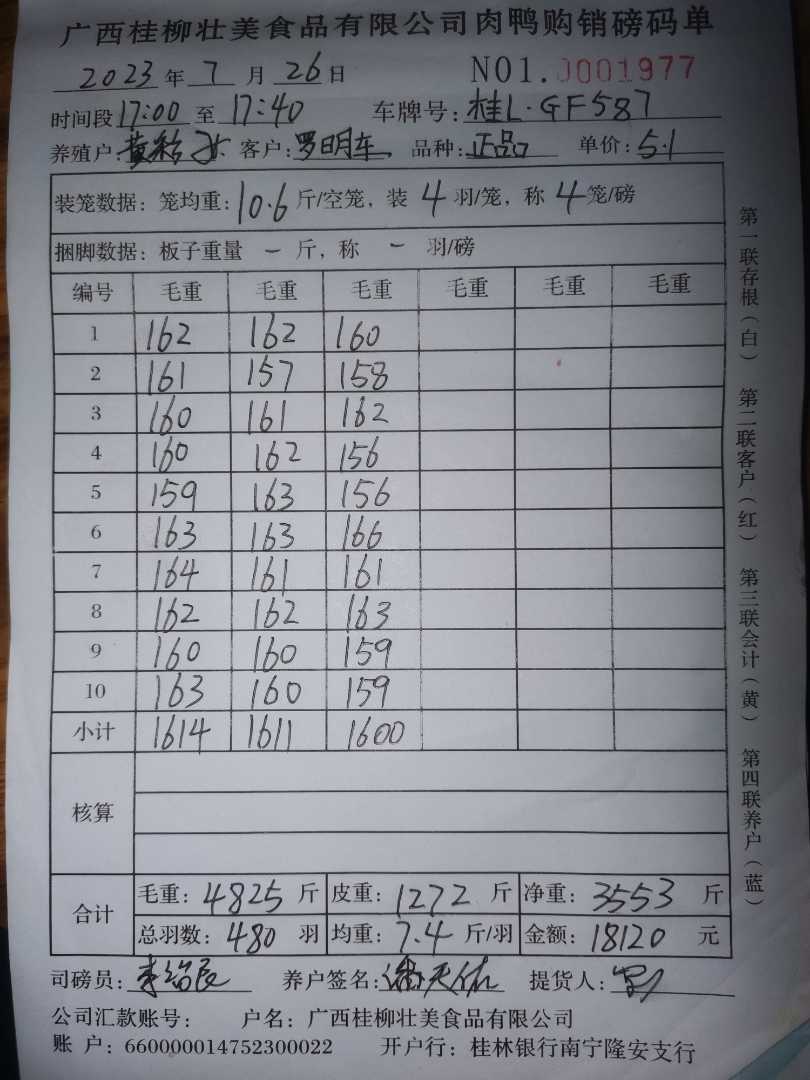 广西桂柳壮美食品有限公司肉鸭购销磅码单
2023 年 7 月 26 日 NO1. 0001977
时间段 17:00 至 17:40 车牌号: 桂L·GF587
养殖户: 客户: 罗明车 品种: 正品 单价: 5.1
装笼数据: 笼均重: 10.6 斤/空笼, 装 4 羽/笼, 称 4 笼/磅
捆脚数据: 板子重量 — 斤, 称 — 羽/磅
编号 毛重 毛重 毛重 毛重 毛重 毛重
1 162 162 160
2 161 157 158
3 160 161 162
4 160 162 156
5 159 163 156
6 163 163 166
7 164 161 161
8 162 162 163
9 160 160 159
10 163 160 159
小计 1614 1611 1600
核算
合计
毛重: 4825 斤 皮重: 1272 斤 净重: 3553 斤
总羽数: 480 羽 均重: 7.4 斤/羽 金额: 18120 元
司磅员: 养户签名: 提货人:
公司汇款账号: 户名: 广西桂柳壮美食品有限公司
账 户: 660000014752300022 开户行: 桂林银行南宁隆安支行
第一联存根(白) 第二联客户(红) 第三联会计(黄) 第四联养户(蓝)